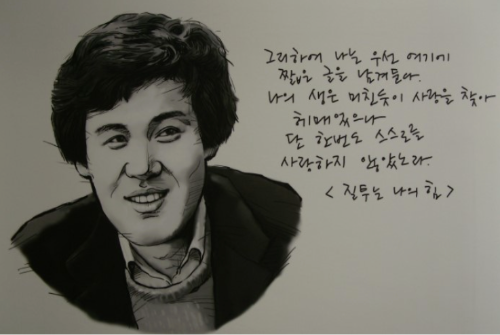 그리하여 나는 우선 여기에
짧은 글을 남겨둔다.
나의 생은 미친듯이 사랑을 찾아
헤매었으나
단 한번도 스스로를
사랑하지 않았노라.
< 질투는 나의 힘 >